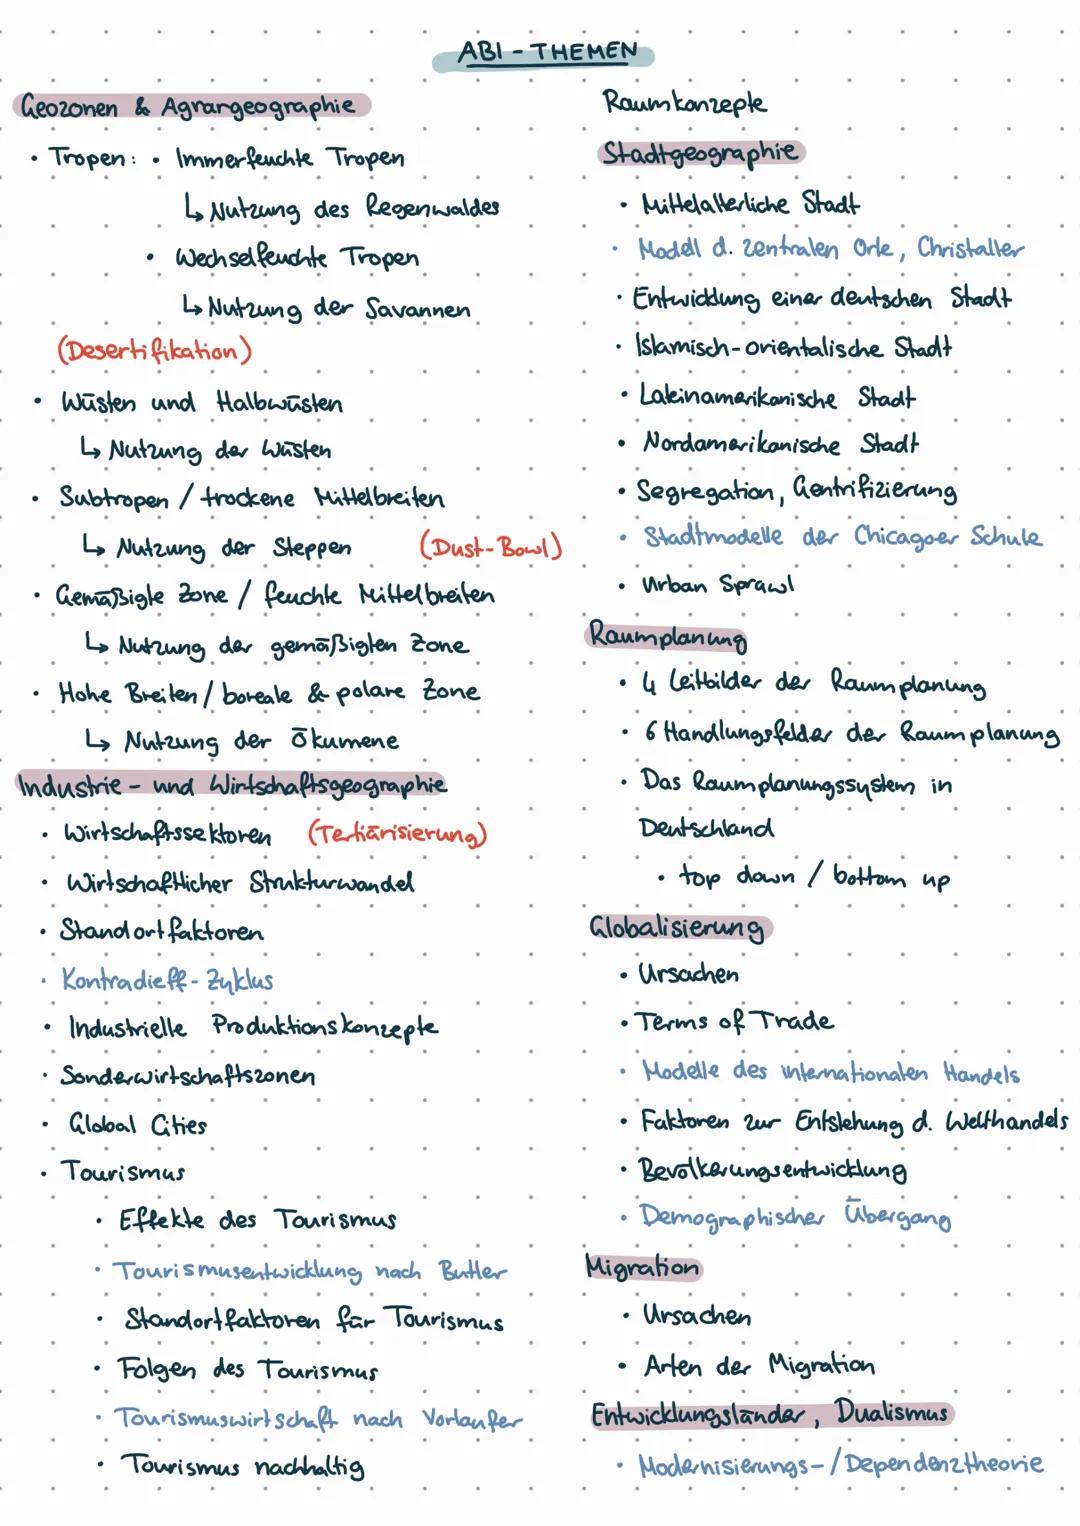 ABI - THEMEN
Geozonen & Agrargeographie
• Tropen: • Immerfeuchte Tropen
↳ Nutzung des Regenwaldes
• Wechselfeuchte Tropen
↳ Nutzung der Savannen
(Desertifikation)
• Wüsten und Halbwüsten
↳ Nutzung der Wüsten
• Subtropen / trockene Mittelbreiten
↳ Nutzung der Steppen (Dust-Bowl)
• Gemäßigte Zone / feuchte Mittelbreiten
↳ Nutzung der gemäßigten Zone
• Hohe Breiten / boreale & polare Zone
↳ Nutzung der Ökumene
Industrie - und Wirtschaftsgeographie
• Wirtschaftssektoren (Tertiärisierung)
• Wirtschaftlicher Strukturwandel
• Standortfaktoren
• Kontradieff - Zyklus
• Industrielle Produktionskonzepte
• Sonderwirtschaftszonen
• Global Cities
• Tourismus
• Effekte des Tourismus
• Tourismusentwicklung nach Butler
• Standortfaktoren für Tourismus
• Folgen des Tourismus
• Tourismuswirtschaft nach Vorlaufer
• Tourismus nachhaltig
Raumkonzepte
Stadtgeographie
• Mittelalterliche Stadt
• Modell d. zentralen Orte, Christaller
• Entwicklung einer deutschen Stadt
• Islamisch-orientalische Stadt
• Lateinamerikanische Stadt
• Nordamerikanische Stadt
• Segregation, Gentrifizierung
• Stadtmodelle der Chicagoer Schule
• Urban Sprawl
Raumplanung
• 4 Leitbilder der Raumplanung
• 6 Handlungsfelder der Raumplanung
• Das Raumplanungssystem in
Deutschland
• top down / bottom up
Globalisierung
• Ursachen
• Terms of Trade
• Modelle des internationalen Handels
• Faktoren zur Entstehung d. Welthandels
• Bevölkerungsentwicklung
• Demographischer Übergang
Migration
• Ursachen
• Arten der Migration
Entwicklungsländer, Dualismus
• Modernisierungs-/Dependenztheorie